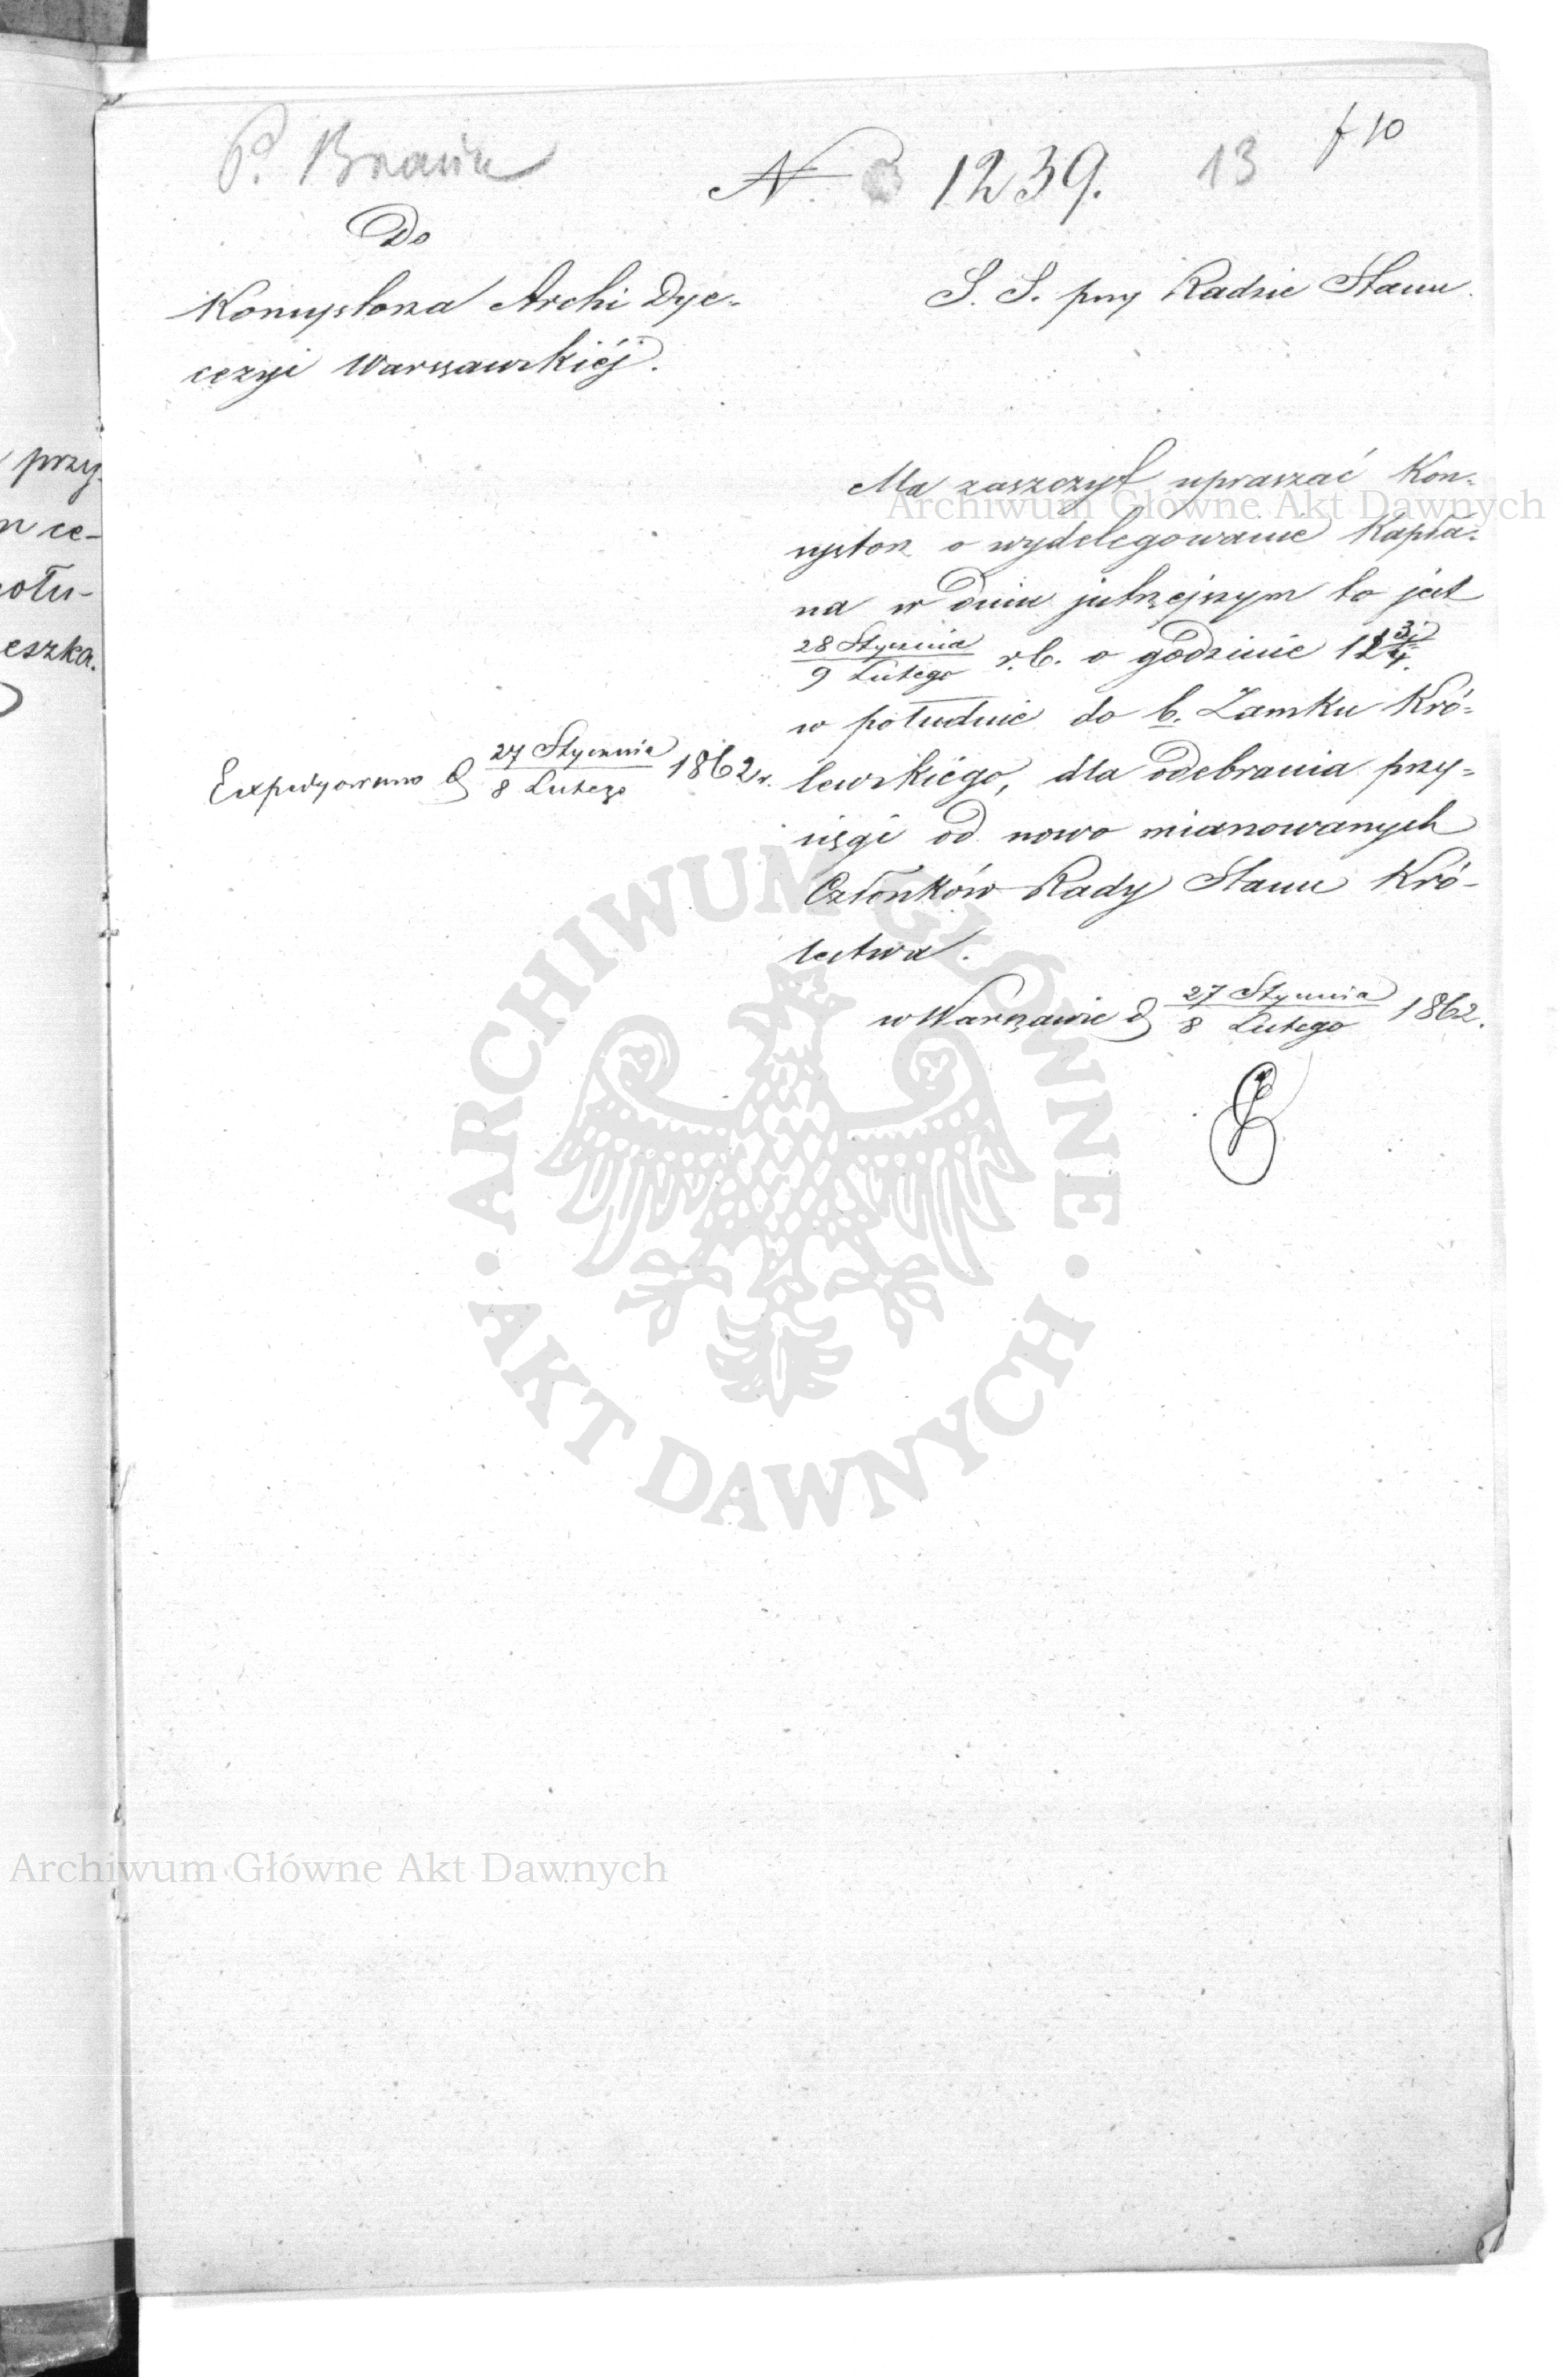 P. Braun
N. 1239.
13
f 10
Do
Konsystorza Archi Dye-
cezyi Warszawskiéj.
S. S. przy Radzie Stanu.
Ma zaszczyt upraszać Kon-
systorz o wydelegowanie Kapła-
na w dniu jutrzejszym to jest
28 Stycznia
9 Lutego
r. b. o godzinie 12 3/4.
w południe do b. Zamku Kró-
lewskiégo, dla odebrania przy-
sięgi od nowo mianowanych
Członków Rady Stanu Kró-
lestwa.
w Warszawie d 27 Stycznia
8 Lutego
1862.
Expedyowano d 27 Stycznia
8 Lutego
1862 r.
przy-
ce-
połu-
eszka.
Archiwum Główne Akt Dawnych
ARCHIWUM GŁÓWNE AKT DAWNYCH
Archiwum Główne Akt Dawnych